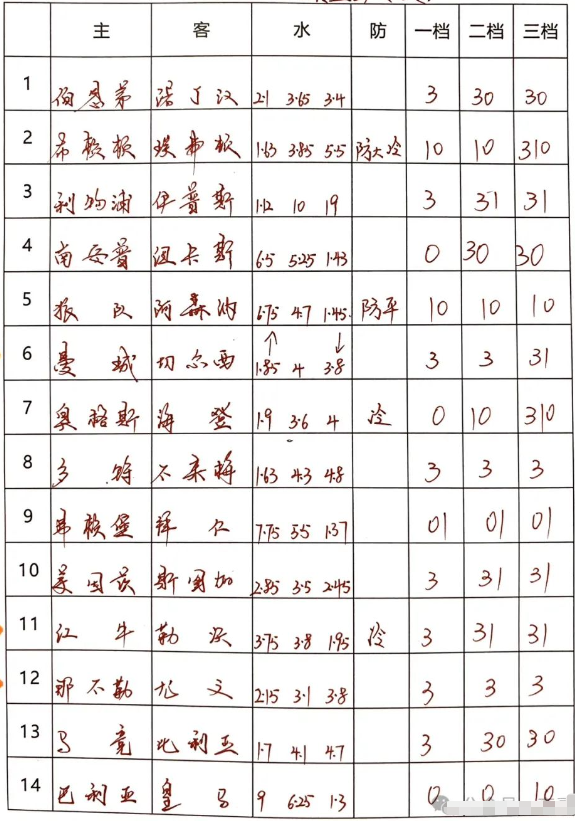 主 客 水 防 一档 二档 三档
1 伯恩茅 诺丁汉 2.1 3.65 3.4 3 30 30
2 布赖顿 埃弗顿 1.63 3.85 5.5 防大冷 10 10 310
3 利物浦 伊普斯 1.12 10 19 3 31 31
4 南安普 纽卡斯 6.5 5.25 1.43 0 30 30
5 狼队 阿森纳 6.75 4.7 1.45 防平 10 10 10
6 曼城 切尔西 ↑ 1.85 4 ↓ 3.8 3 3 31
7 奥格斯 海登 1.9 3.6 4 冷 0 10 310
8 多特 不来梅 1.63 4.3 4.8 3 3 3
9 弗赖堡 拜仁 7.75 5.5 1.37 01 01 01
10 美因茨 斯图加 2.85 3.5 2.45 3 31 31
11 红牛 勒沃 3.75 3.8 1.95 冷 3 31 31
12 那不勒 尤文 2.15 3.1 3.8 3 3 3
13 马竞 比利亚 1.7 4.1 4.7 3 30 30
14 巴利亚 皇马 9 6.25 1.3 0 0 10